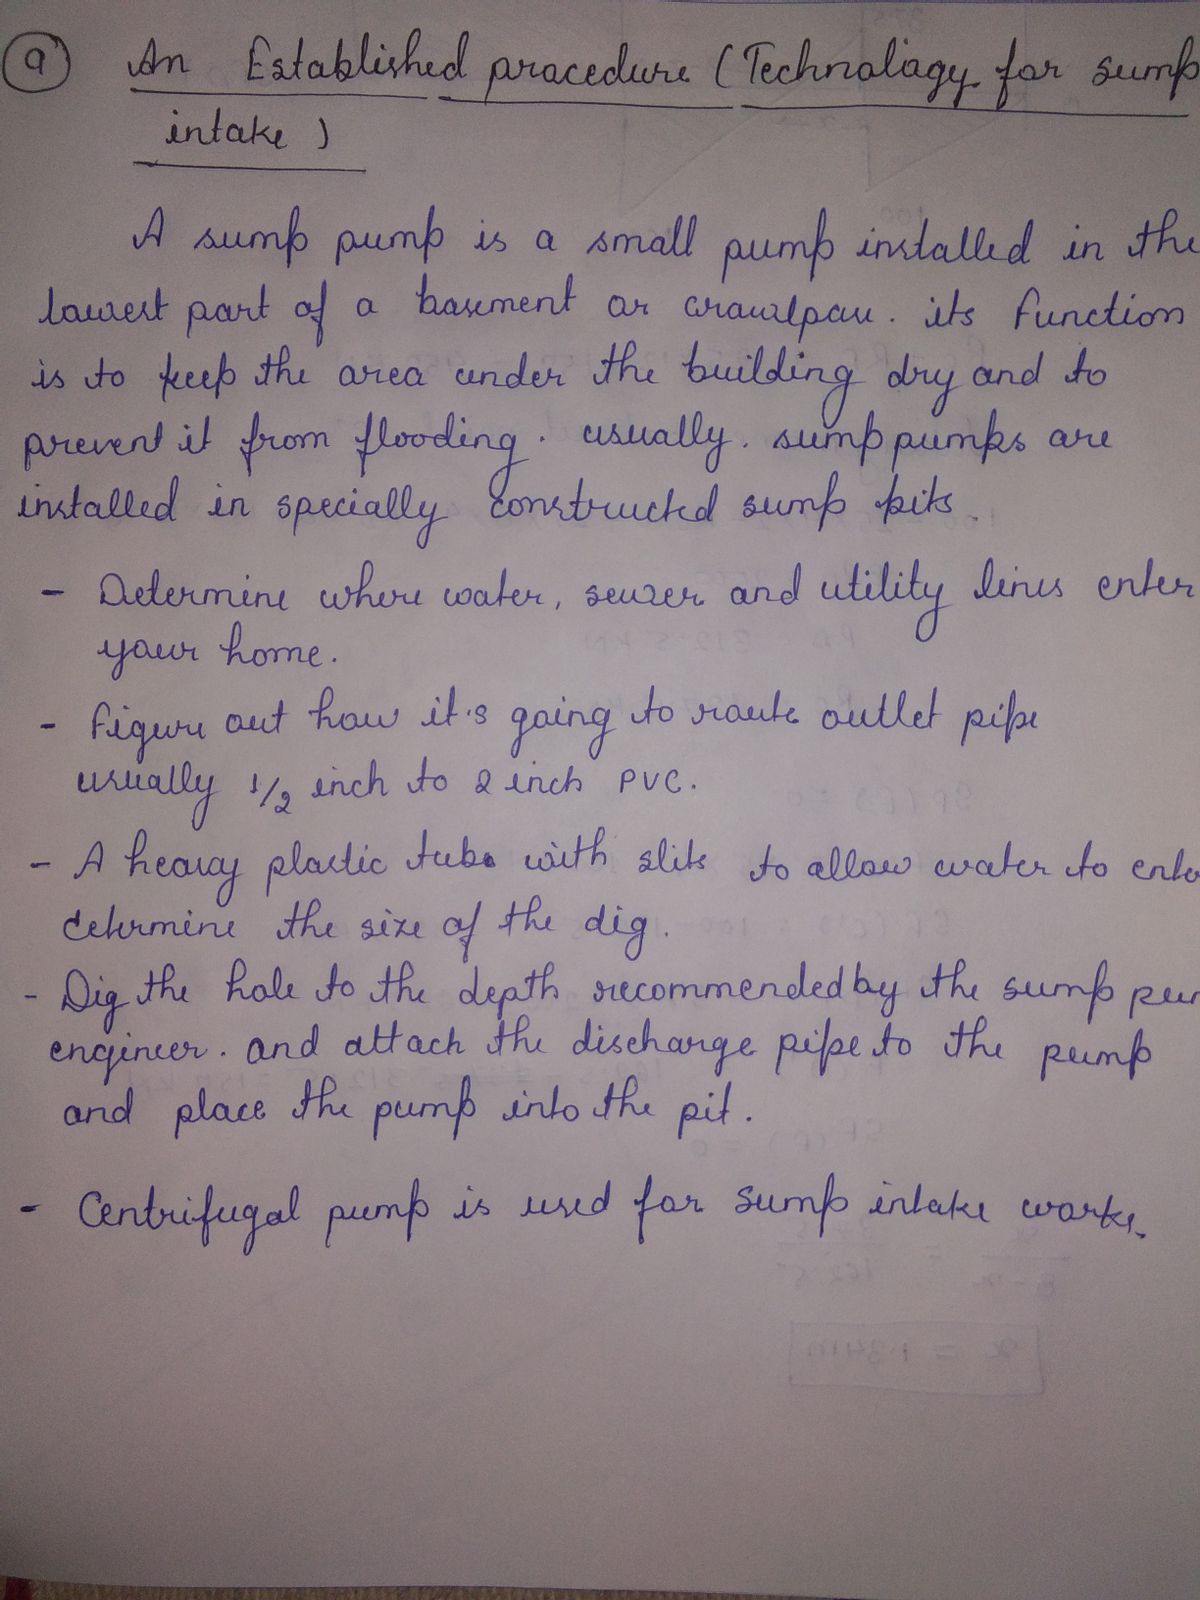 9 An Established procedure (Technology for sump
intake )
A sump pump is a small pump installed in the
lowest part of a basement or crawlpau. its function
is to keep the area under the building dry and to
prevent it from flooding. usually. sump pumps are
installed in specially constructed sump pits.
- Determine where water, sewer and utility lines enter
your home.
- figure out how it's going to route outlet pipe
usually 1/2 inch to 2 inch PVC.
- A heavy plastic tube with slits to allow water to
determine the size of the dig.
- Dig the hole to the depth recommended by the sump
engineer. and attach the discharge pipe to the pump
and place the pump into the pit.
- Centrifugal pump is used for sump intake works.